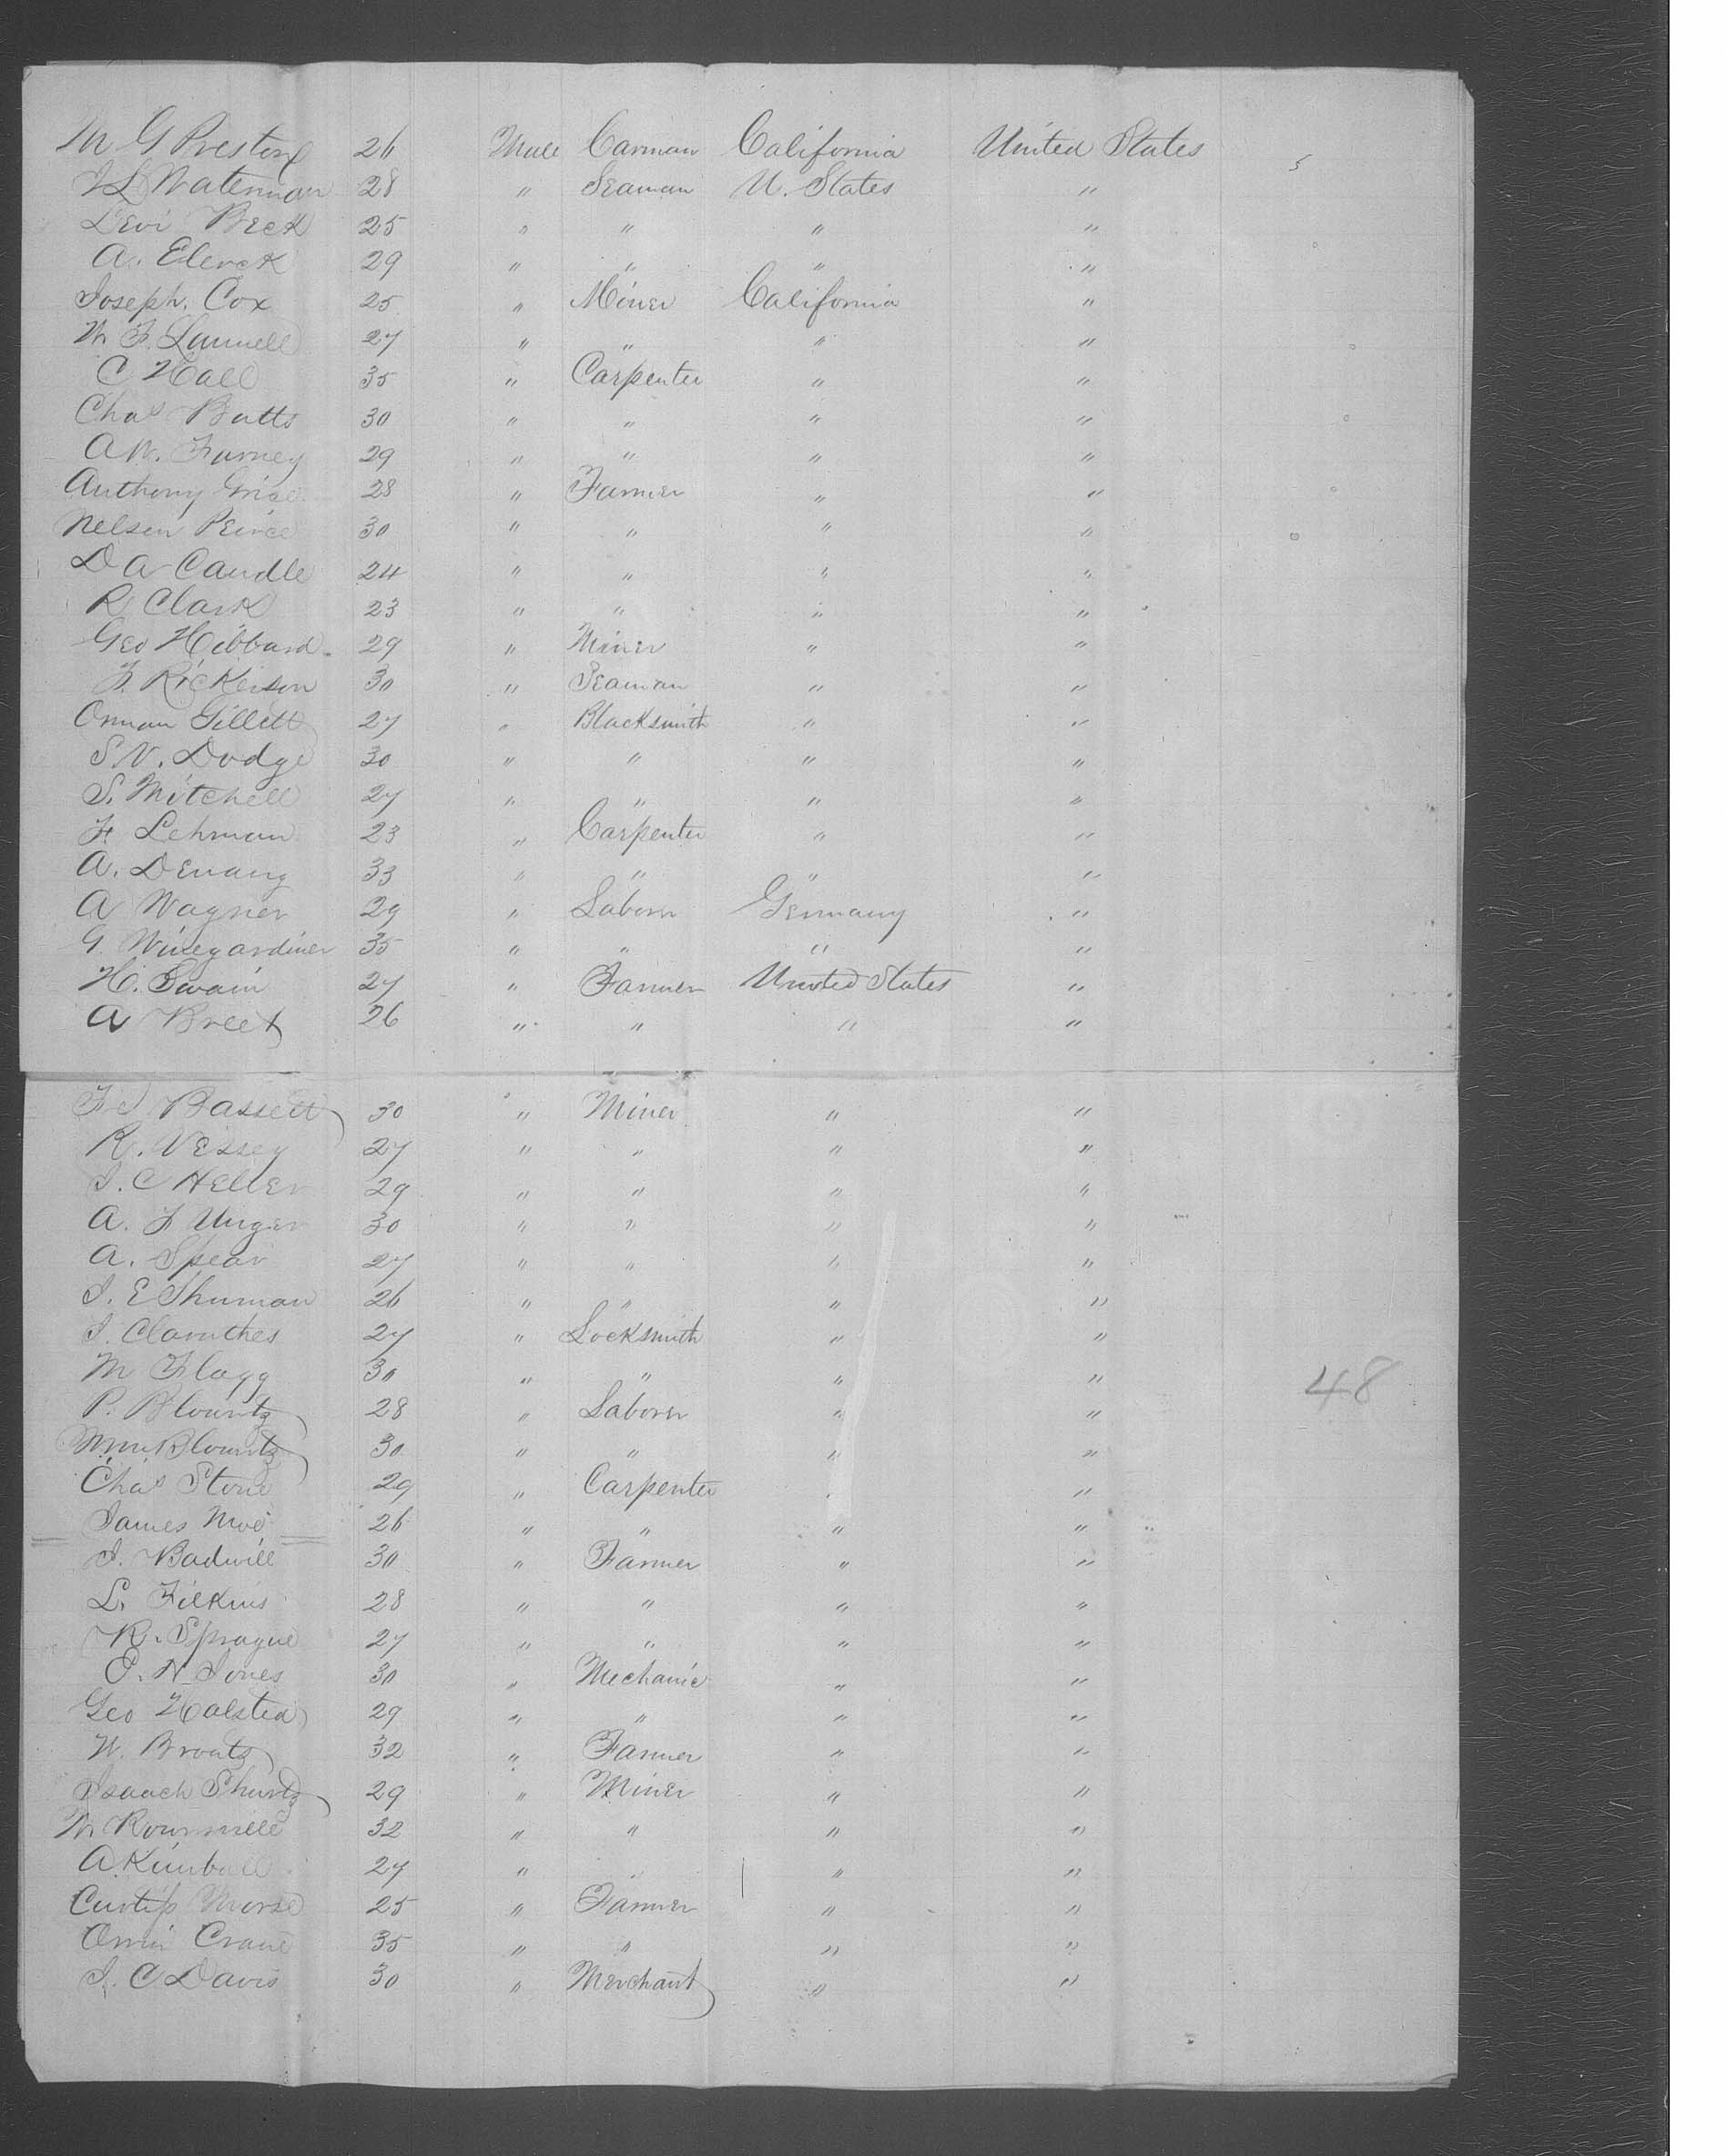 M G Preston 26 Male Carman California United States 5
J L Waterman 28 " Seaman U. States "
Levi Beck 25 " " " "
A. Elerck 29 " " " "
Joseph. Cox 25 " Miner California "
W. F. Lunnell 27 " " " "
C Hall 35 " Carpenter " "
Chas Butts 30 " " " "
A W. Furney 29 " " " "
Anthony 28 " Farmer " "
Nelson Peirce 30 " " " "
D A Caudle 24 " " " "
R Clark 23 " " " "
Geo Hibbard 29 " Miner " "
F. Rickerson 30 " Seaman " "
Orman Gillett 27 " Blacksmith " "
S. N. Dodge 30 " " " "
S. Mitchell 27 " " " "
F. Lehman 23 " Carpenter " "
A. Denang 33 " " " "
A Wagner 29 " Laborer Germany "
G. Winegardiner 35 " " " "
H. Swain 27 " Farmer United States "
A Breet 26 " " " "
F J Bassett 30 " Miner " "
R. Vessey 27 " " " "
J. C Heller 29 " " " "
A. F Unger 30 " " " "
A. Spear 27 " " " "
J. E Shuman 26 " " " "
J. Claruthes 27 " Locksmith " "
M Flagg 30 " " " "
48
P. Blountz 28 " Laborer " "
Wm Blountz 30 " " " "
Chas Stone 29 " Carpenter " "
James Moe 26 " " " "
J. Badwill 30 " Farmer " "
L. Filkins 28 " " " "
R. Sprague 27 " " " "
E. N Jones 30 " Mechanic " "
Geo Halsted 29 " " " "
W. Broatz 32 " Farmer " "
Isaach Shurtz 29 " Miner " "
32 " " " "
A. Kimball 27 " " " "
Curtis Morse 25 " Farmer " "
Orrin Crane 35 " " " "
J. C Davis 30 " Merchant " "